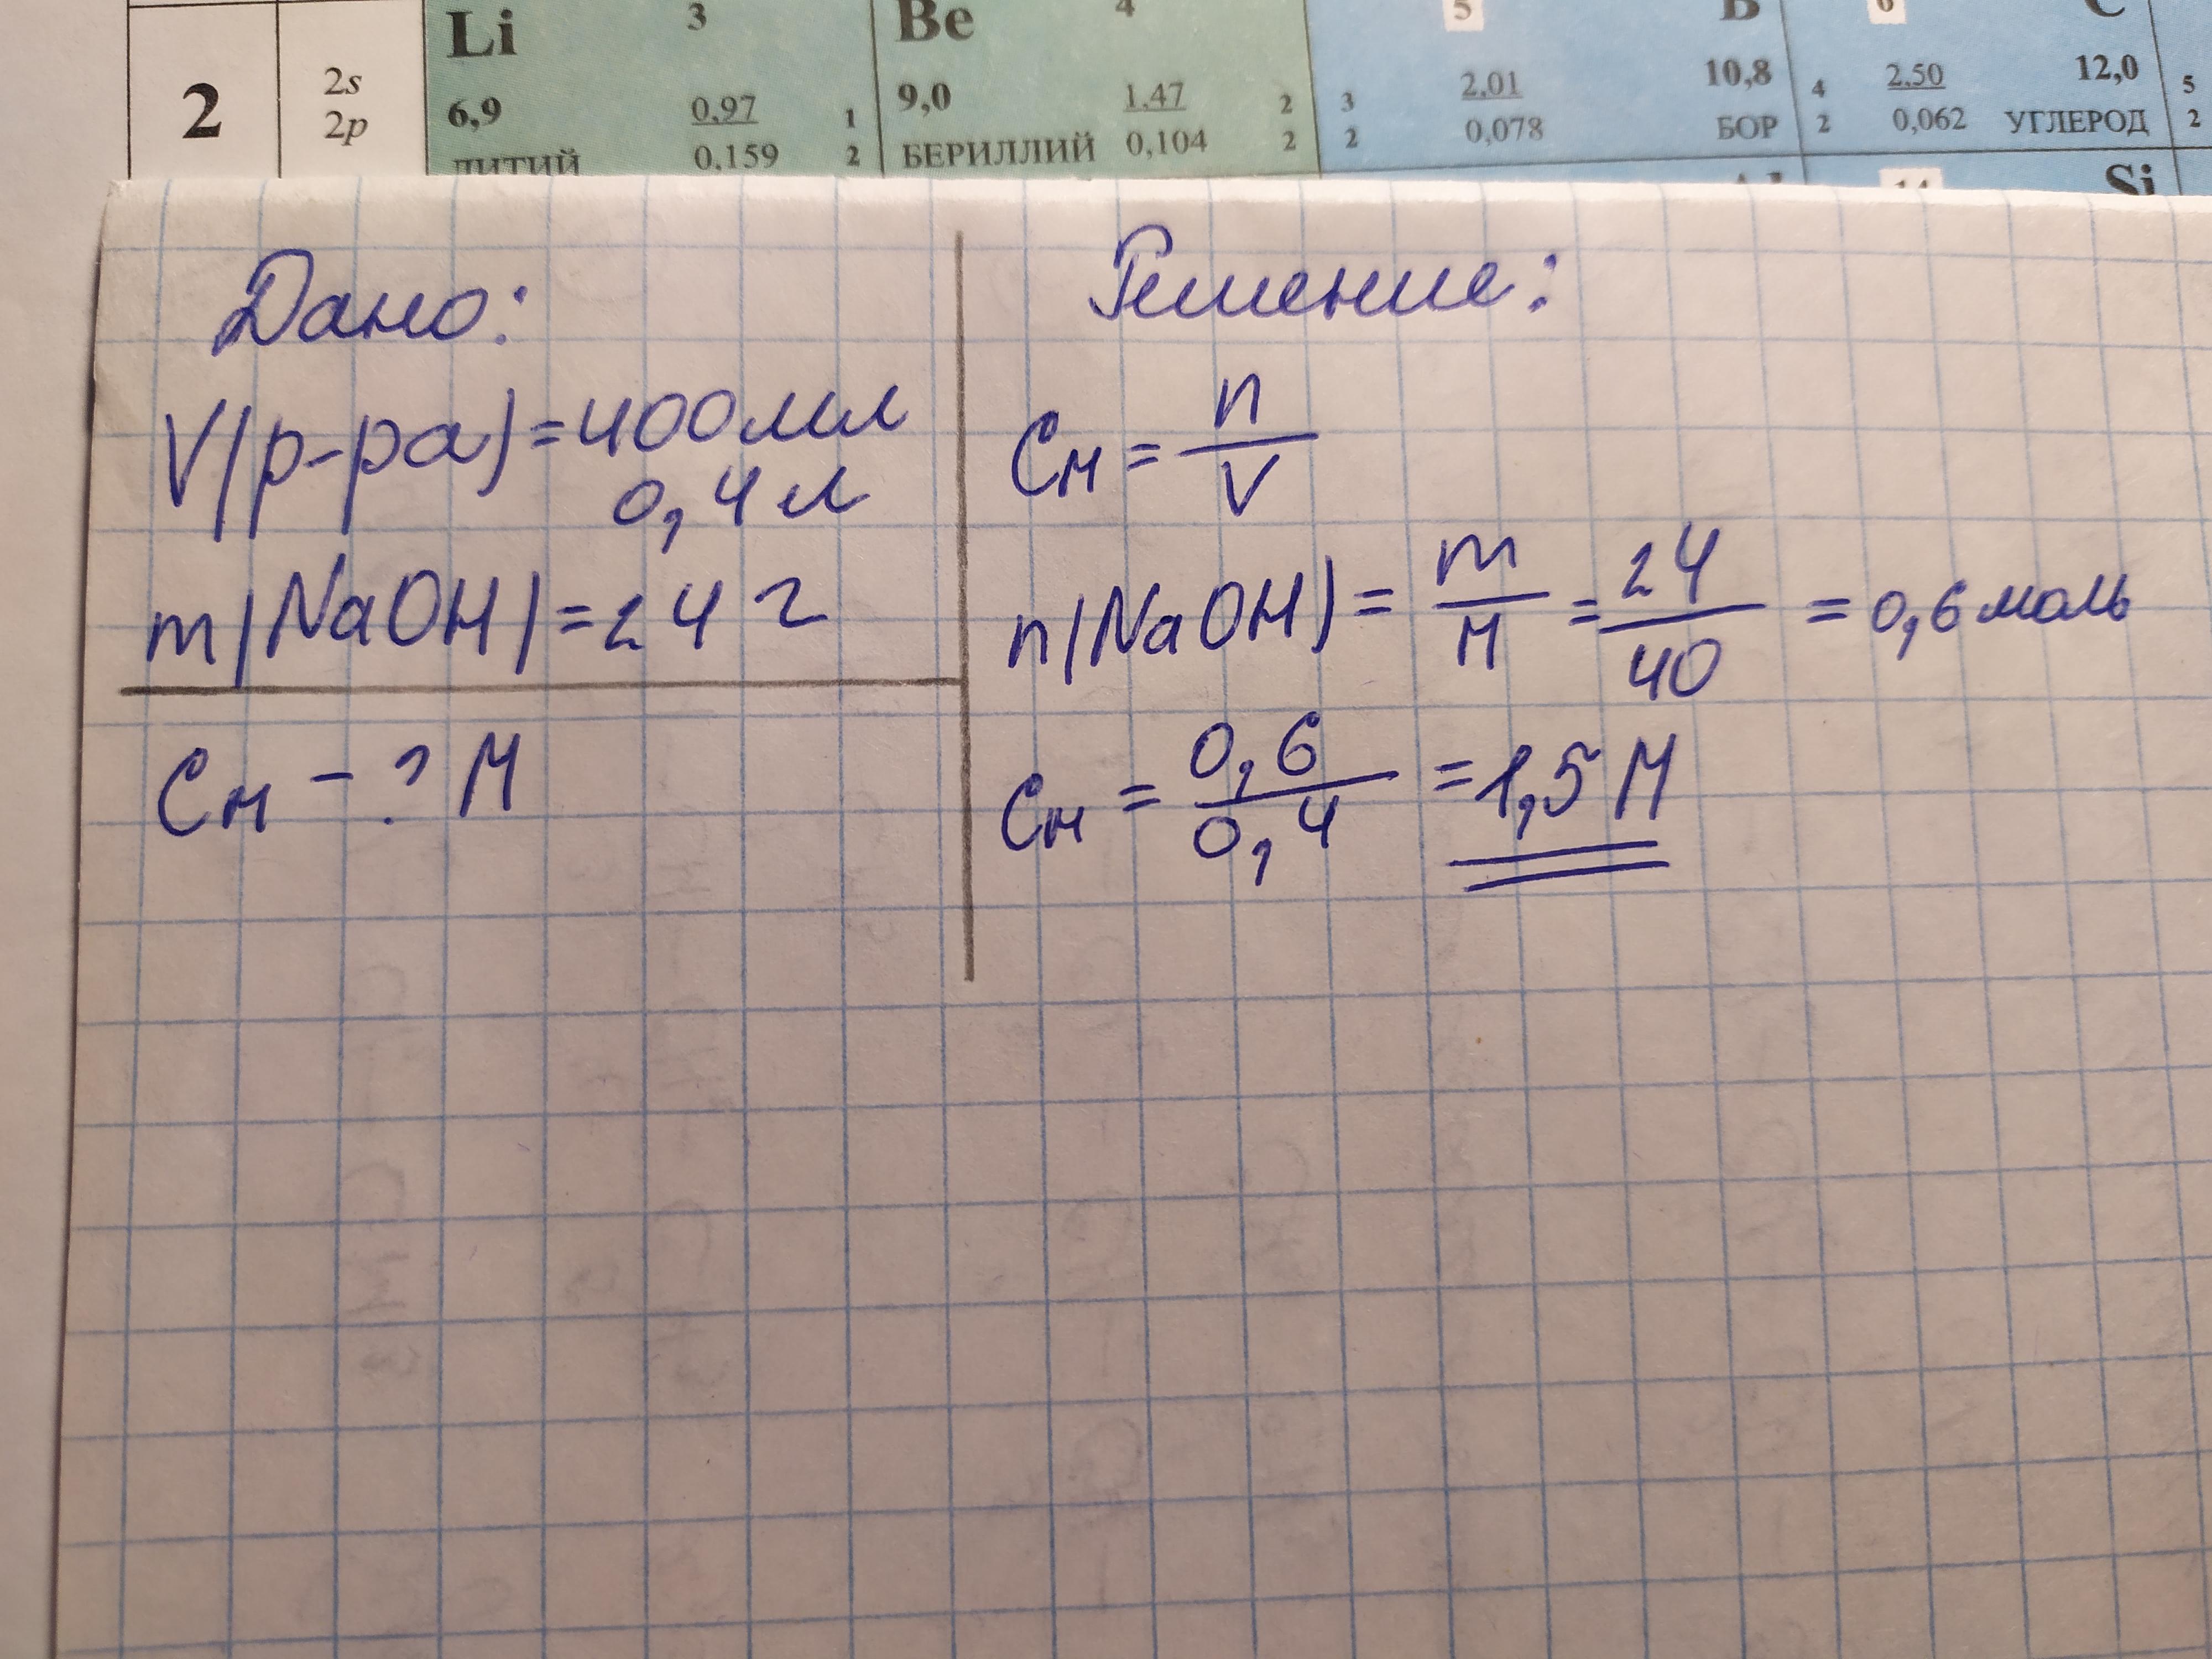 Li 3 Be 4 5 B 6 C
2 2s 6,9 0,97 1 9,0 1,47 2 3 2,01 10,8 4 2,50 12,0 5
2p ЛИТИЙ 0,159 2 БЕРИЛЛИЙ 0,104 2 2 0,078 БОР 2 0,062 УГЛЕРОД 2
14 Si
Дано:
V(р-ра)=400мл
0,4л
m(NaOH)=24 г
Cм - ? М
Решение:
Cм = n/V
n(NaOH) = m/M = 24/40 = 0,6 моль
Cм = 0,6/0,4 = 1,5 М